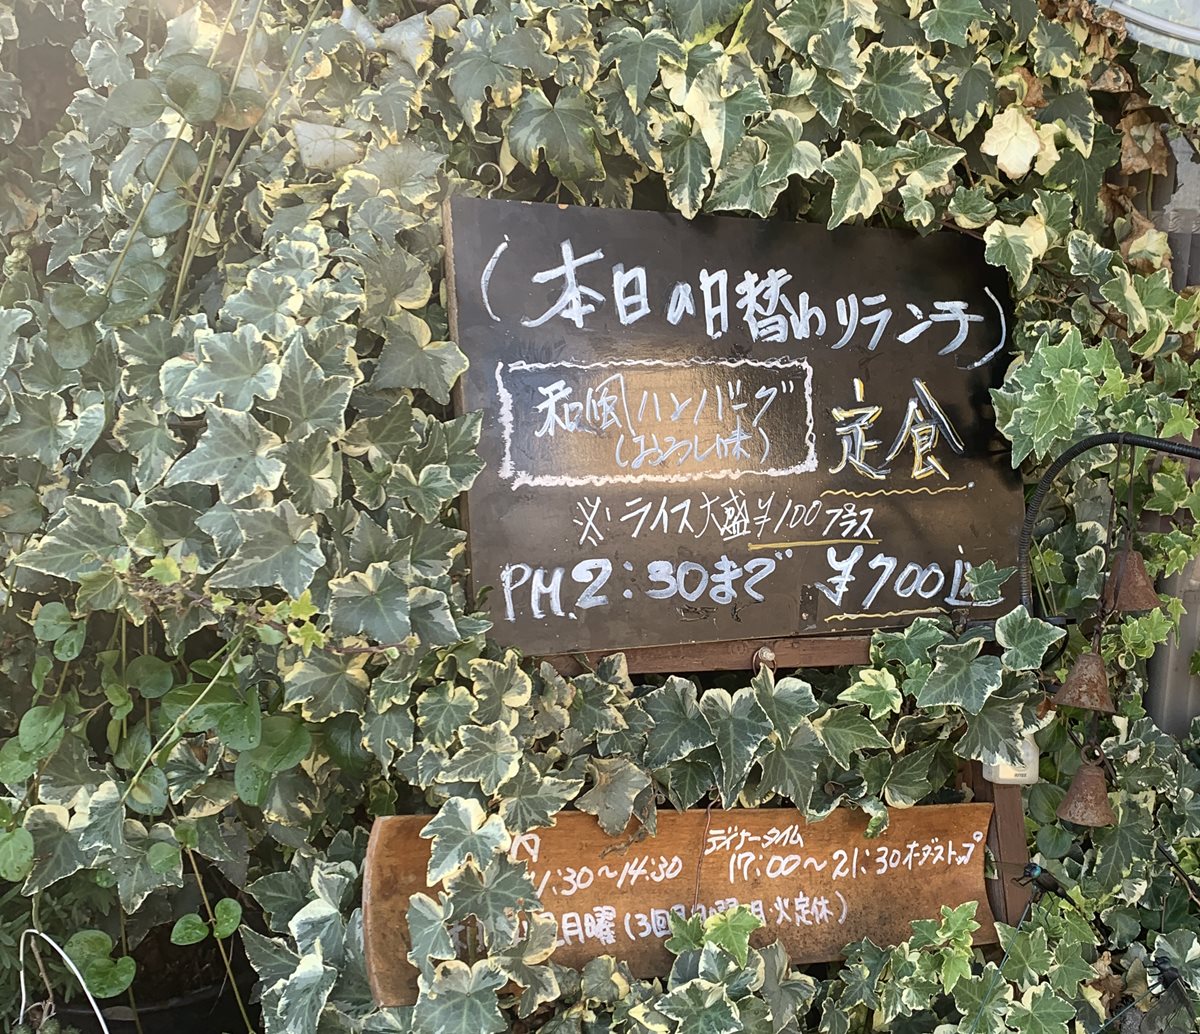 (本日の日替わりランチ)
和風ハンバーグ
(おろし味)
定食
※ライス大盛¥100プラス
PM.2:30まで ¥700込
1:30〜14:30
ディナータイム
17:00〜21:30オーダーストップ
月曜(3回目 月・火定休)